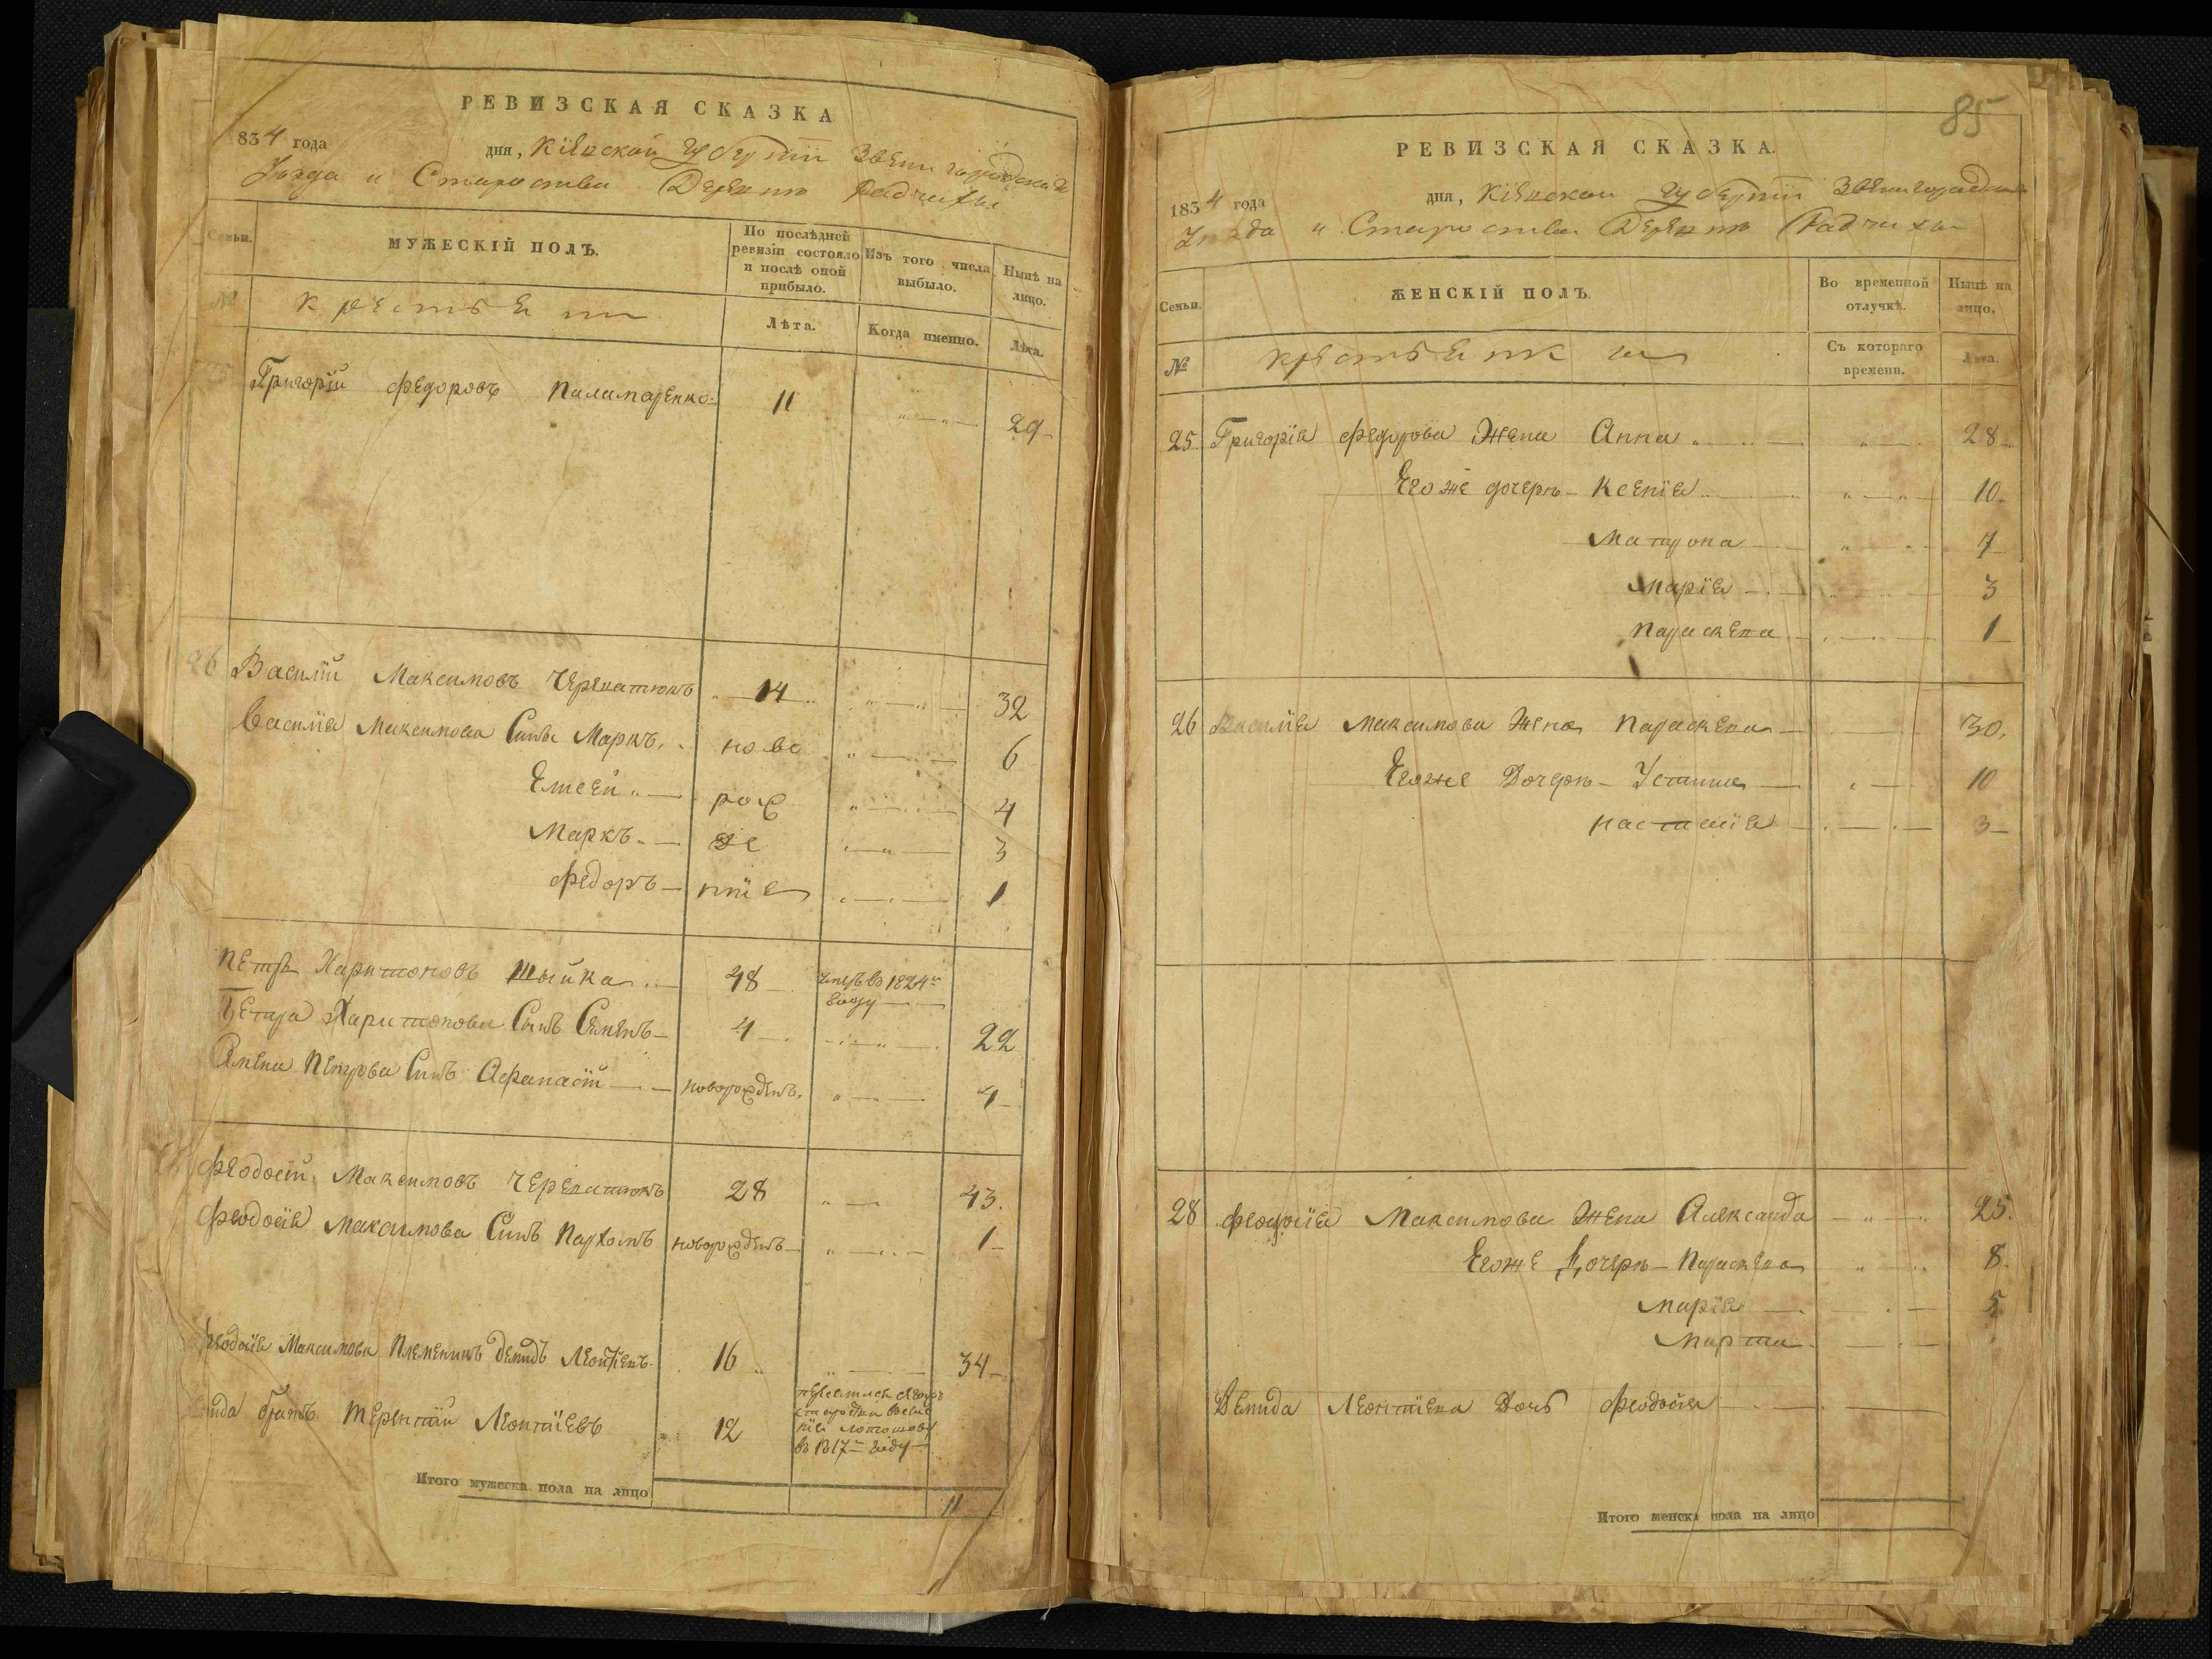 РЕВИЗСКАЯ СКАЗКА
834 года дня, Кіевской Губерніи Звенигородскаго
Уѣзда и Староства Деревнѣ Радчихи
Семьи. МУЖЕСКІЙ ПОЛЪ. По послѣдней ревизіи состояло и послѣ оной прибыло. Изъ того числа выбыло. Нынѣ на лицо.
№ крестьяни Лѣта. Когда именно. Лѣта.
Григорій Федоровъ Паламаренко 11 29
26 Василій Максимовъ Череватюкъ 14 32
Василія Максимова Сины Маркъ ново 6
Елисей рож 4
Маркъ де 3
Федоръ нніе 1
Петръ Харитоновъ Шыйка 48 Умеръ въ 1824м году
Петра Харитонова Сынъ Семенъ 4 22
Семена Петрова Синъ Афанасій новорожденъ 4
Феодосій Максимовъ Череватюкъ 28 43.
Феодосія Максимова Синъ Пархомъ новорожденъ 1
Феодосія Максимова Племеникъ Демидъ Леонтіевъ 16 34
братъ Терентій Леонтіевъ 12
въ 1817м году
Итого мужеска пола на лицо 11
85
РЕВИЗСКАЯ СКАЗКА.
1834 года дня, Кіевской Губерніи Звенигородскаго
Уѣзда и Староства Деревнѣ Радчихи
Семьи. ЖЕНСКІЙ ПОЛЪ. Во временной отлучкѣ. Нынѣ на лицо.
№ крестьянки Съ котораго времени. Лѣта.
25 Григорія Федорова Жена Анна 28
Егоже дочерѣ Ксенія 10
Матрона 7
Марія 3
Параскева 1
26 Василія Максимова Жена Параскева 30.
Егоже Дочерѣ Устинія 10
Настасія 3
28 Феодосія Максимова Жена Александа 25.
Егоже Дочерѣ Параскева 8
Марія 5
Марта
Демида Леонтіева Дочь Феодосія
Итого женска пола на лицо